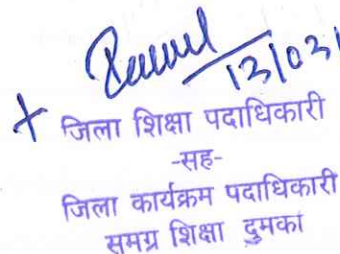 13/03/
जिला शिक्षा पदाधिकारी
-सह-
जिला कार्यक्रम पदाधिकारी
समग्र शिक्षा दुमका